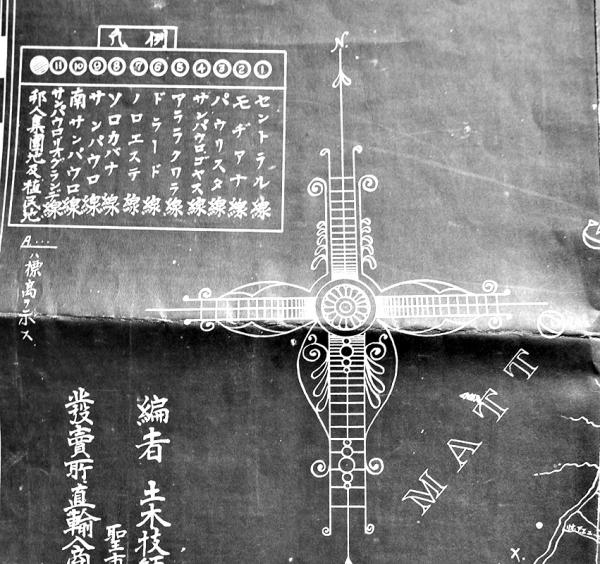 凡例
① セントラル線
② モヂアナ線
③ パウリスタ線
④ サンパウロゴヤス線
⑤ アララクワラ線
⑥ ドラード線
⑦ ノロエステ線
⑧ ソロカバナ線
⑨ サンパウロ線
⑩ 南サンパウロ線
⑪ サンパウロリオグランデ線
邦人集團地及植民地
ハ標高ヲ示ス
N.
MATTO
編者 土木技師
發賣所直輸入商
聖市
X.